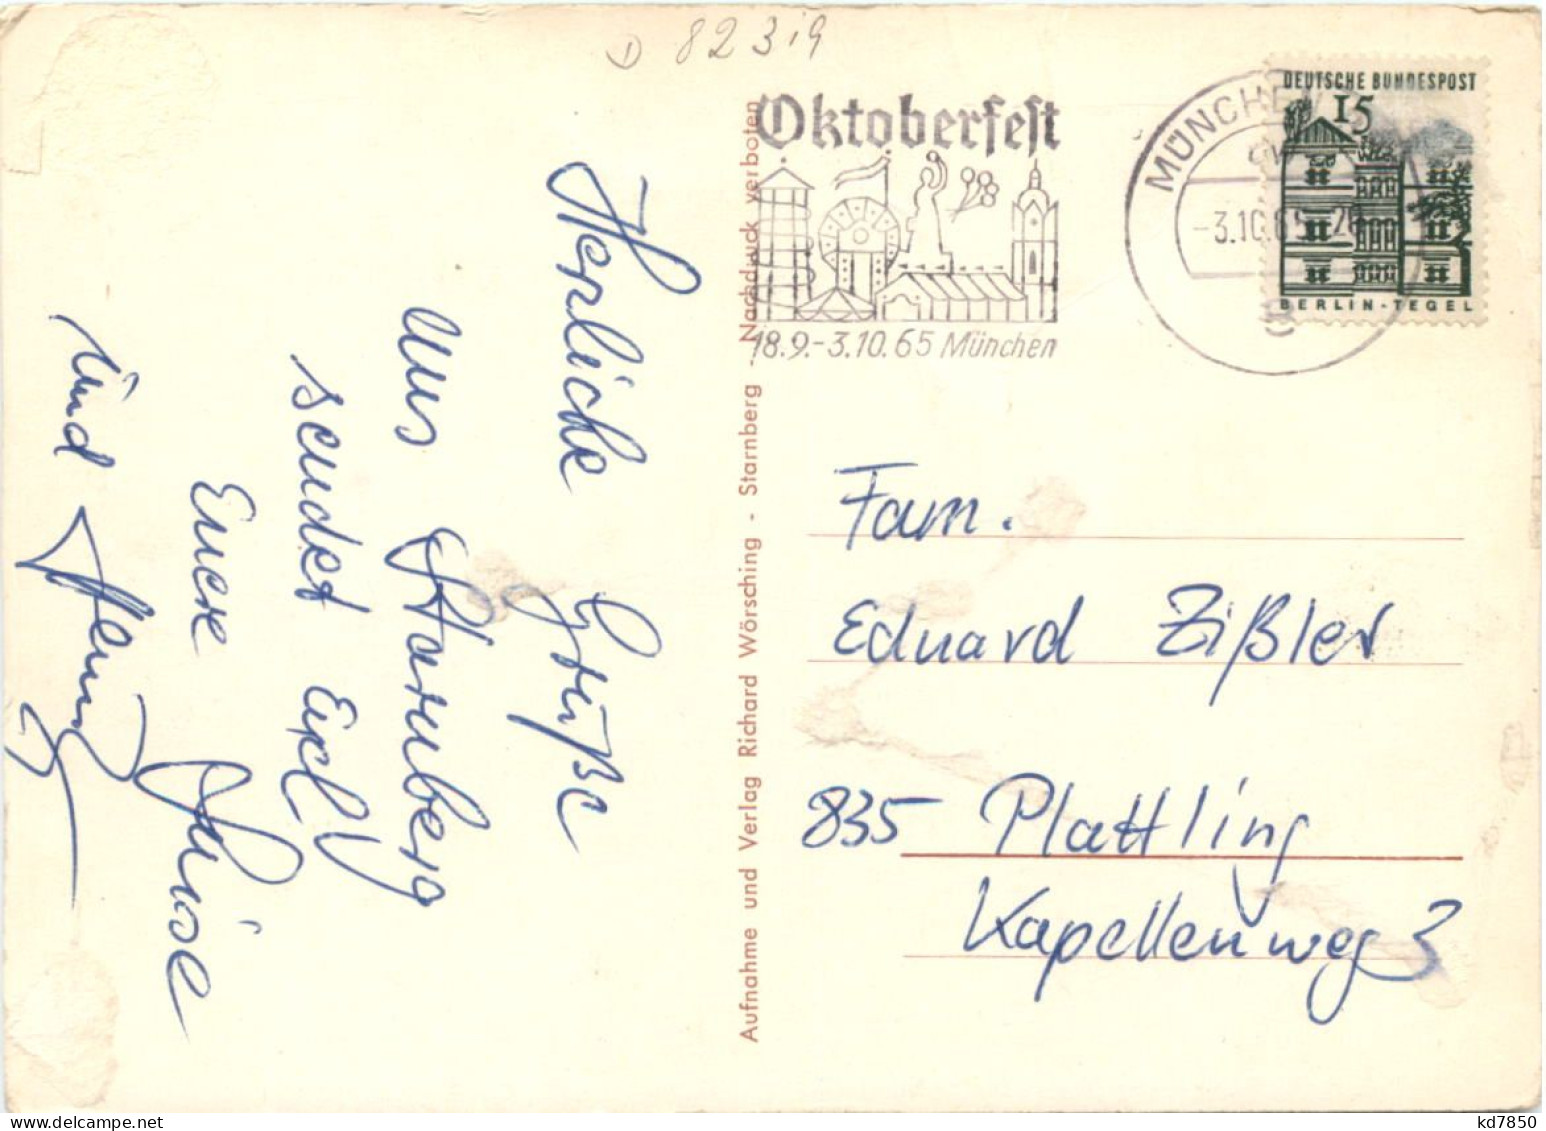 D 8231g
Oktoberfest
18.9.-3.10.65 München
MÜNCHEN
-3.10.65-20
8
DEUTSCHE BUNDESPOST
15
BERLIN-TEGEL
Herzliche Grüße
aus Starnberg
sendet Euch
Eure Luise
und
Aufnahme und Verlag Richard Wörsching - Starnberg - Nachdruck verboten
Fam.
Eduard Zißler
835 Plattling
Kapellenweg 3
kd7850